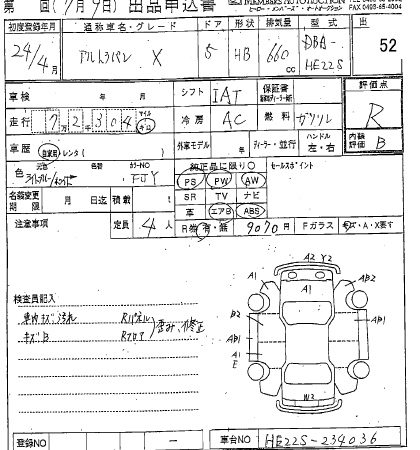 第 回(7月9日) 出品申込書
MEMBERS AUTO AUCTION
FAX 0493-65-4004
初度登録年月 通称車名・グレード ドア 形状 排気量 型式 出
24/4 アルトラパン X 5 HB 660cc DBA-HE22S 52
車検 年 月 シフト IAT 保証書 評価点
走行 72304 マイル キロ 冷房 AC 燃料 ガソリン R
車歴 自家用 レンタ( ) 外車モデル 年 ディーラー・並行 ハンドル 左・右 内装評価 B
色 元色 色替 カラーNO FJY
純正品に限り○ セールスポイント
PS PW AW
名義変更期限 月 日迄 積載 t SR TV ナビ
革 エアB ABS
注意事項 定員 4人 R券 有・無 9070円 Fガラス キズ・A・X要す
検査員記入
車内キズ汚れ Rパネル
キズB Rフロア 歪み、修正
A2 Y2
A1 A1 AB2
B2 AB1 AB1
A1
E
W2
登録NO ー 車台NO HE22S-234036